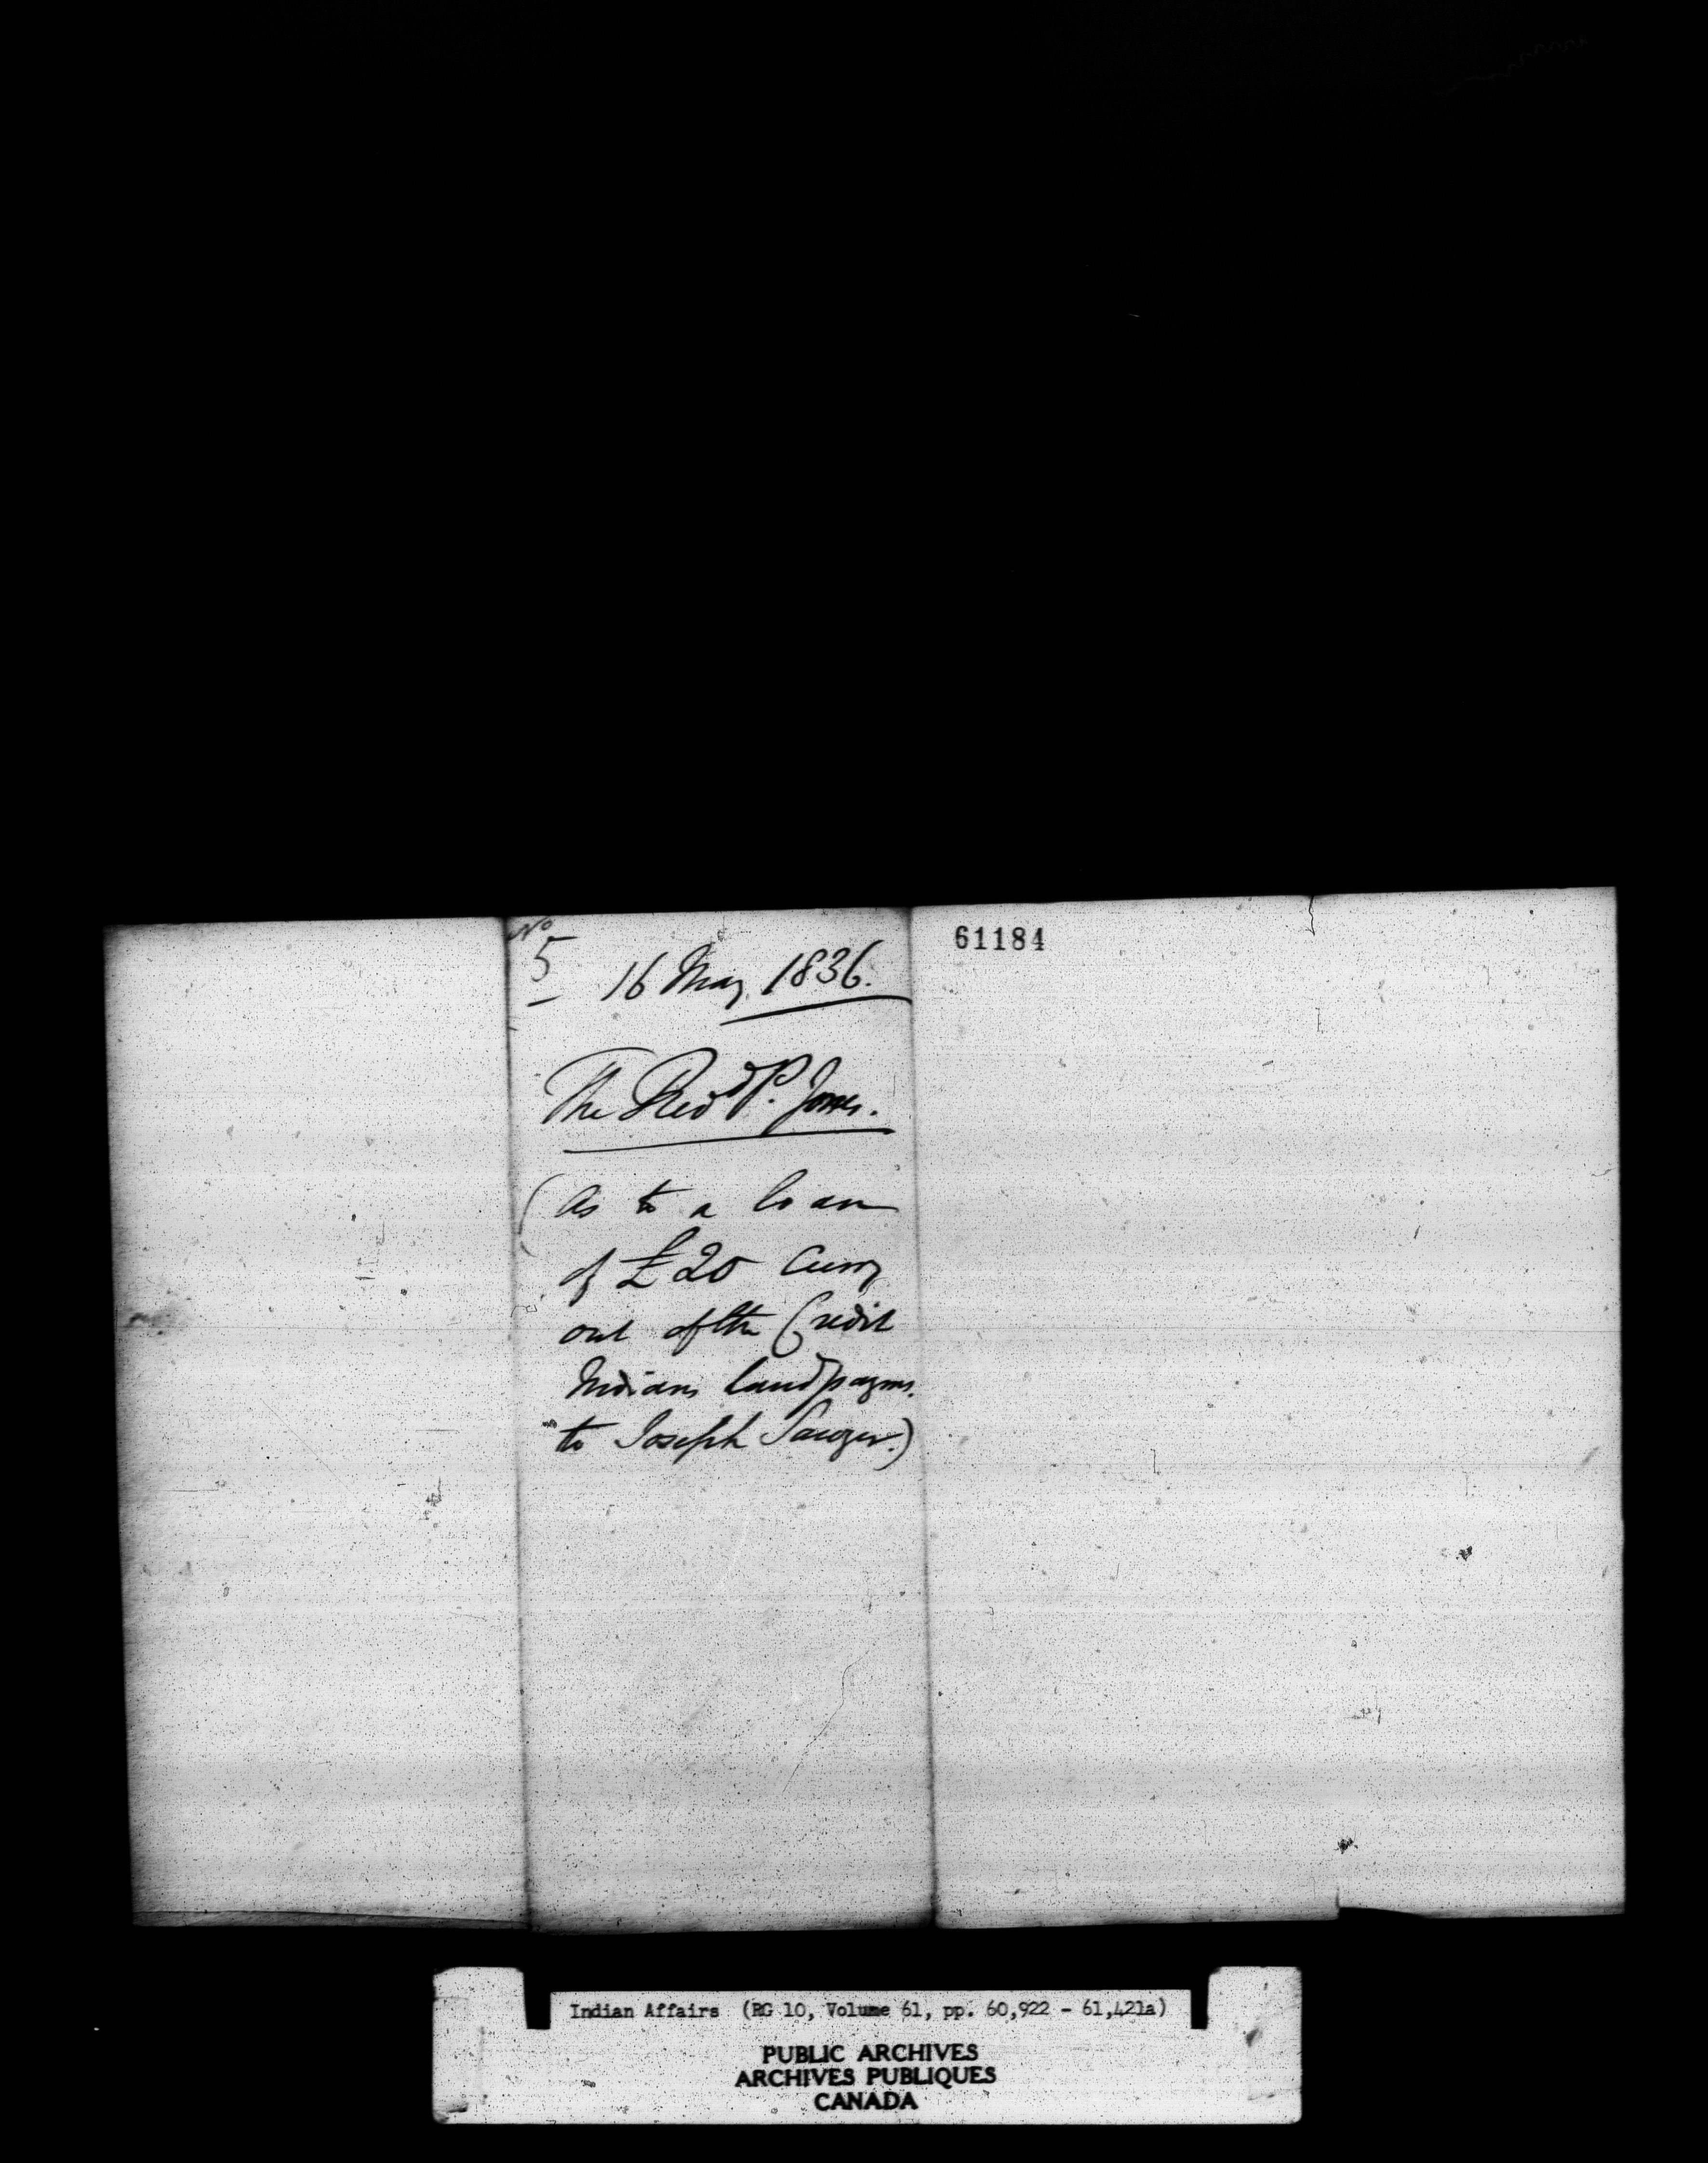 No
5
16 May 1836.
61184
The Revd P. Jones.
(As to a loan
of £20 Curry
out of the Credit
Indians land paymts.
to Joseph Sawyer.)
Indian Affairs (RG 10, Volume 61, pp. 60,922 - 61,421a)
PUBLIC ARCHIVES
ARCHIVES PUBLIQUES
CANADA